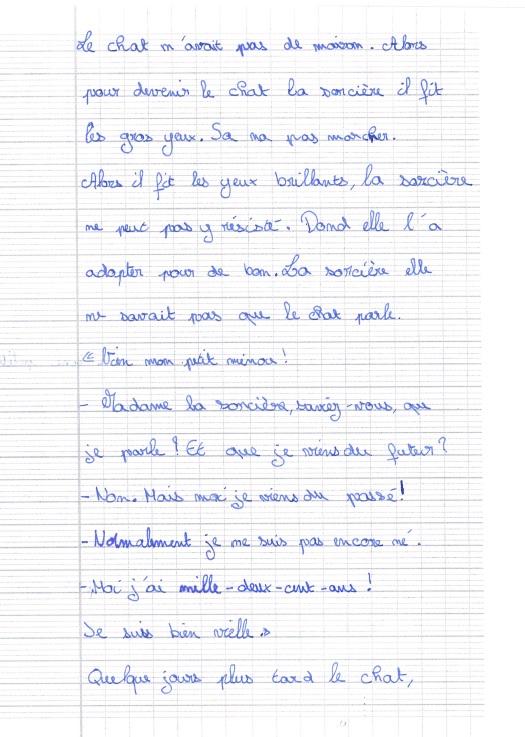 Le chat n'avait pas de maison. Alors
pour devenir le chat la sorcière il fit
les gros yeux. Sa na pas marcher.
Alors il fit les yeux brillants, la sorcière
ne peut pas y résisté. Dond elle l'a
adapter pour de bon. La sorcière elle
ne savait pas que le chat parle.
« Vien mon petit minou !
- Madame la sorcière, saviez-vous, que
je parle ! Et que je viens du futur ?
- Non. Mais moi je viens du passé !
- Normalement je ne suis pas encore né.
- Moi j'ai mille-deux-cent-ans !
Je suis bien vielle. »
Quelque jours plus tard le chat,